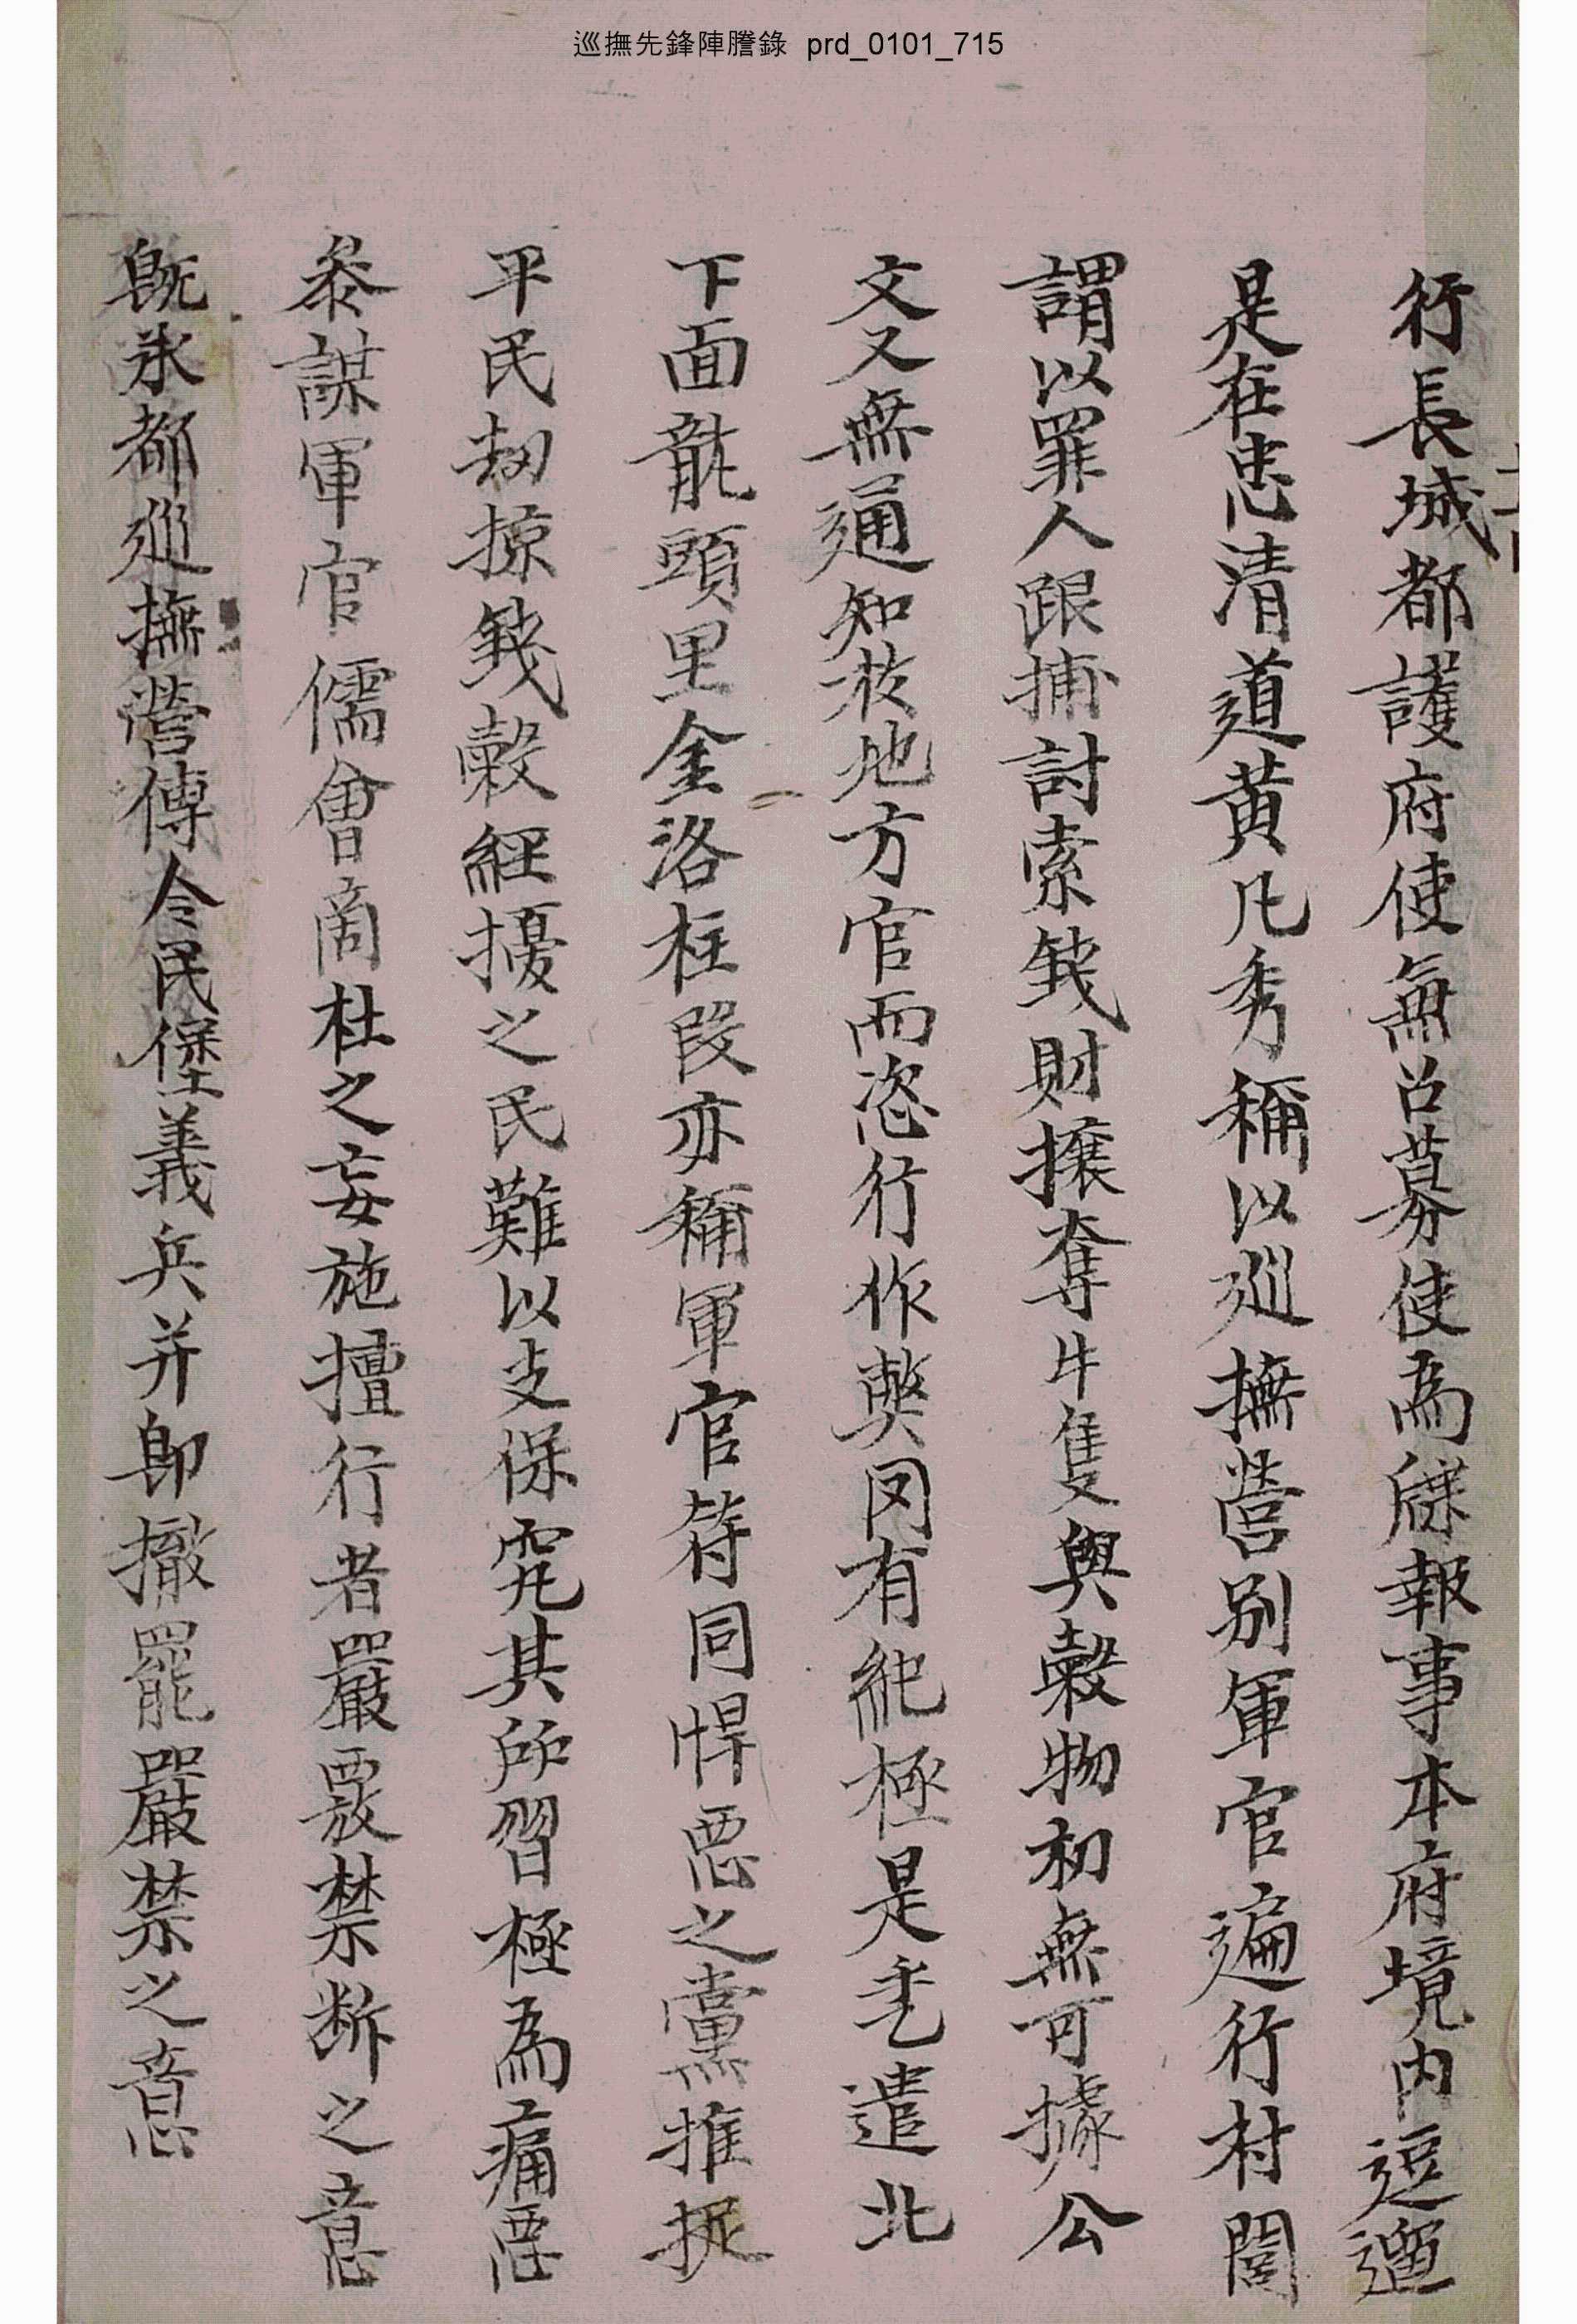 巡撫先鋒陣謄錄 prd_0101_715
行長城都護府使無召募使為牒報事本府境內逗遛
是在忠清道黃凡秀稱以巡撫營別軍官遍行村閭
謂以罪人跟捕討索錢財攘奪牛隻與穀物初無可據公
文又無通知於地方官而恣行作弊罔有紀極是乎遣北
下面龍頭里金洛柱段亦稱軍官符同悍惡之黨推捉
平民劫掠錢穀經擾之民難以支保究其所習極為痛惡
叅謀軍官儒會商杜之妄施擅行者嚴覈禁斷之意
旣承都巡撫營傳令民堡義兵并卽撤罷嚴禁之意